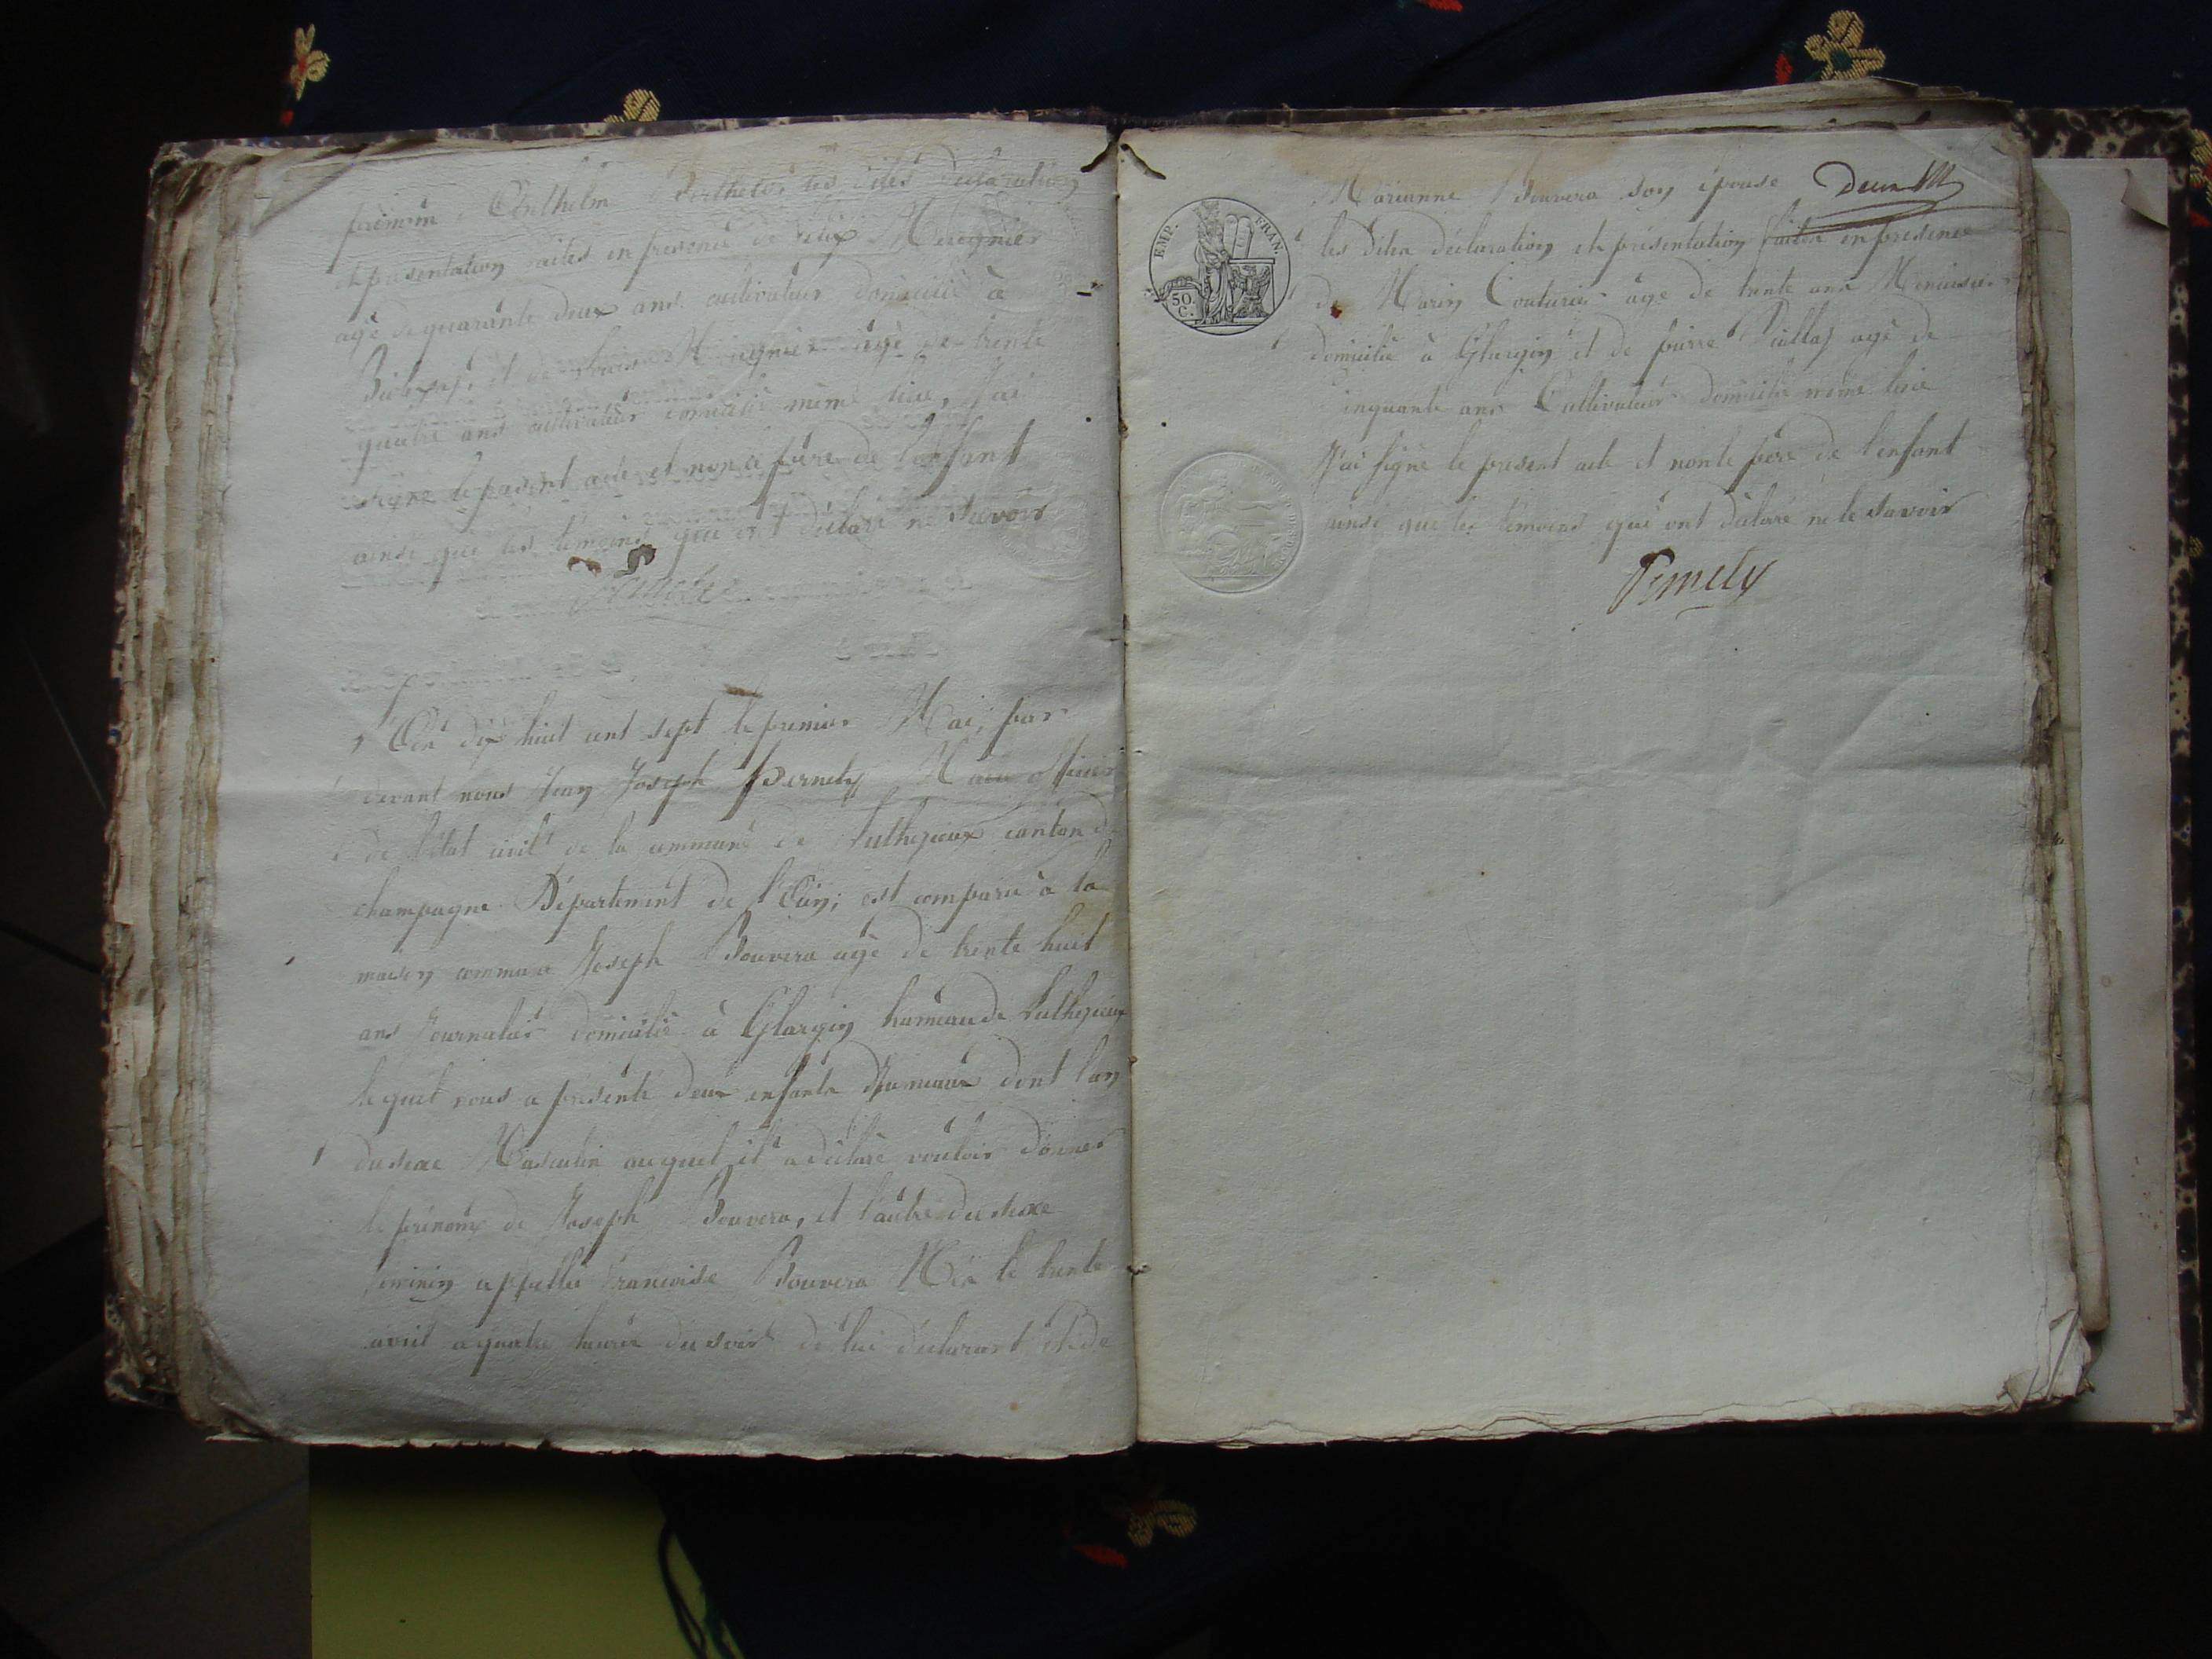 prénom Anthelme Berthet, les dites déclaration
et présentation faites en présence de félix Meugnier
agé de quarante deux ans cultivateur domicilié à
et de Louis Meugnier agé de trente
quatre ans cultivateur domicilié même lieu, J'ai
signé le present acte et non le père de l'enfant
ainsi que les témoins qui ont déclaré ne savoir
L'an dix huit cent sept le premier Mai, par
devant nous Jean Joseph Pernety Maire officier
de l'état civil de la commune de Luthezieux canton de
champagne Département de l'Ain, est comparu à la
maison commune Joseph Bouvera agé de trente huit
ans Journalier domicilié à Glargin hameau de Luthezieux
lequel nous a présenté deux enfants Jumeaux dont l'un
du sexe Masculin auquel il a déclaré vouloir donner
le prénom de Joseph Bouvera, et l'autre du sexe
féminin appellée francoise Bouvera Née le trente
avril a quatre heures du soir de lui déclarant et de
EMP. FRAN.
50.
C.
Marianne Bouvera son épouse
les dites déclaration et présentation faites en présence
de Marin Couturier agé de trente ans Menuisier
domicilié à Glargin et de pierre agé de
cinquante ans Cultivateur domicilié même lieu
J'ai signé le present acte et non le père de l'enfant
ainsi que les témoins qui ont déclaré ne le savoir
Pernety